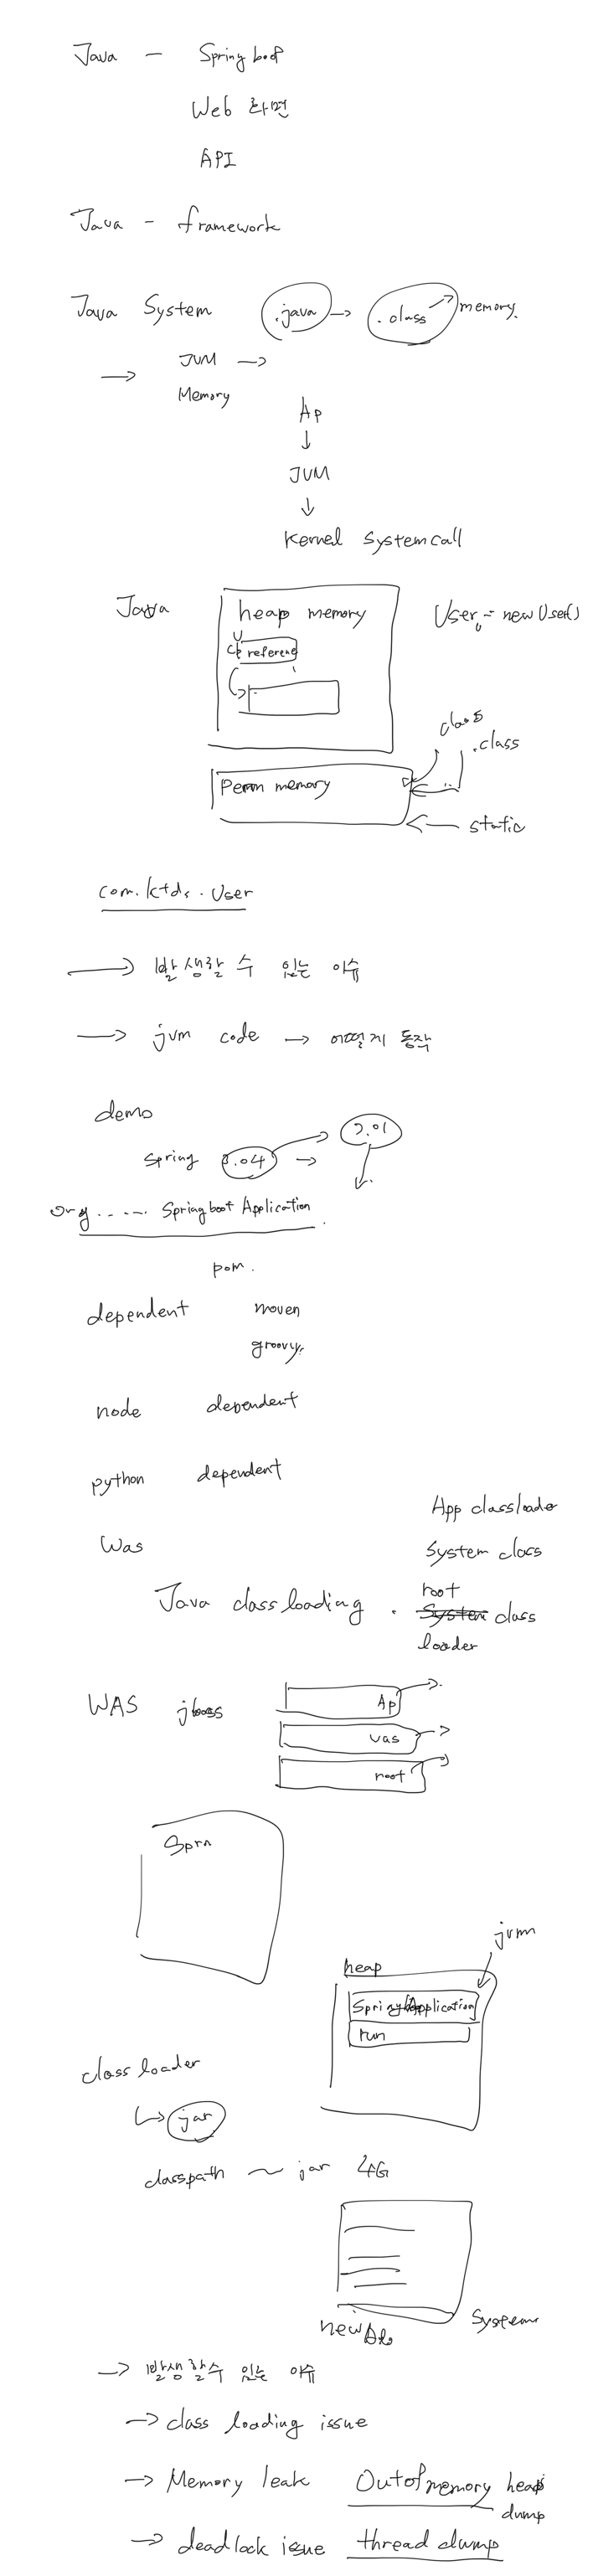 Java - Springboot
Web 화면
API
Java - framework
Java System .java → .class memory.
→ JVM →
Memory
Ap
↓
JVM
↓
Kernel Systemcall
Java
heap memory
User = new User()
reference
class
.class
Perm memory
← static
com.ktds.User
→ 발생할 수 있는 이슈
→ jvm code → 어떻게 동작
demo
spring 3.04 → 3.01
org..... Springboot Application.
pom.
dependent maven
groovy.
node dependent
python dependent
App classloader
Was
System class
Java class loading .
root
System class
loader
WAS jboss
Ap
was
root
Sprn
jvm
heap
Spring Application
run
class loader
↳ jar
classpath ~ jar 4G
System
new
→ 발생할수 있는 이슈
→ class loading issue
→ Memory leak Outofmemory heap
dump
→ deadlock issue thread dump